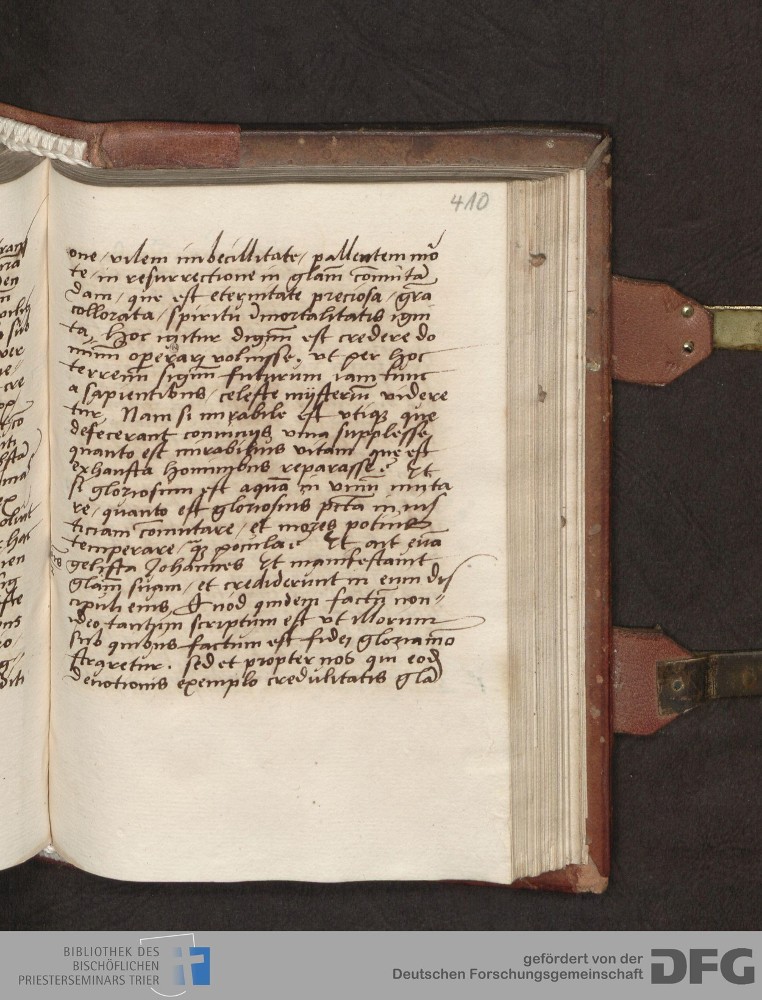 410
one / vilem imbecillitate / pallentem mō
te / in resurrectione in glam̄ cōmuta
dam / que est eternitate preciosa / grā
collorata / spiritu īmortalitatis igni
ta / Hoc igitur dignū est credere do
minū operari voluisse, vt per hoc
terrenū signū futurum iam tunc
a sapientibus / celeste mÿsteriū videre
tur / Nam si mirabile est vtiqȝ que
defecerant conviviis vina supplesse
quanto est mirabilius vitam que est
exhausta hominibus reparasse? Et
si gloriosum est aquā in vinū muta
re / quanto est gloriosius pctā in ius
ticiam cōmutare / et mores potius
temperare / qȝ pocula? Et ait eūa
gelista Johannes Et manifestauit
glam̄ suam / et crediderunt in eum dis
cipuli eius, Quod quidem factū non
ideo tantum scriptum est vt illorum
sub quibus factum est fidei gloria mō
straretur. sed et propter nos qui eodē
deuotionis exemplo credulitatis glā
BIBLIOTHEK DES
BISCHÖFLICHEN
PRIESTERSEMINARS TRIER
gefördert von der
Deutschen Forschungsgemeinschaft
DFG